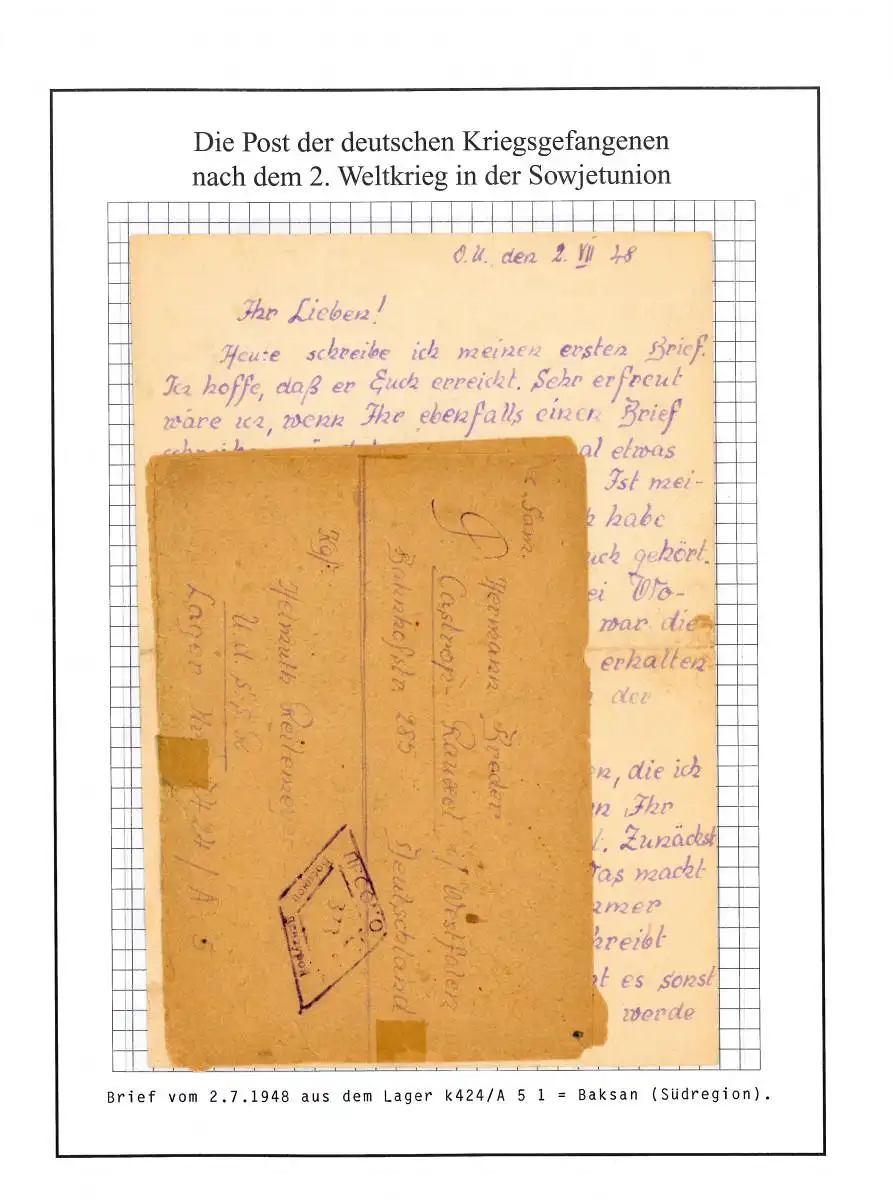 Die Post der deutschen Kriegsgefangenen
nach dem 2. Weltkrieg in der Sowjetunion
O.U. den 2. VII 48
Ihr Lieben!
Heute schreibe ich meinen ersten Brief.
Ich hoffe, daß er Euch erreicht. Sehr erfreut
wäre ich, wenn Ihr ebenfalls einen Brief
al etwas
Ist mei-
habe
uch gehört.
ei Wo-
war die
erhalten
der
en, die ich
n Ihr
t. Zunächst
Das macht
mmer
hreibt
ht es sonst
werde
Hermann Breder
Castrop-Rauxel i/ Westfalen
Bahnhofstr 285 Deutschland
Helmuth
U.d.S.S.R
Lager /A 5
Brief vom 2.7.1948 aus dem Lager k424/A 5 1 = Baksan (Südregion).